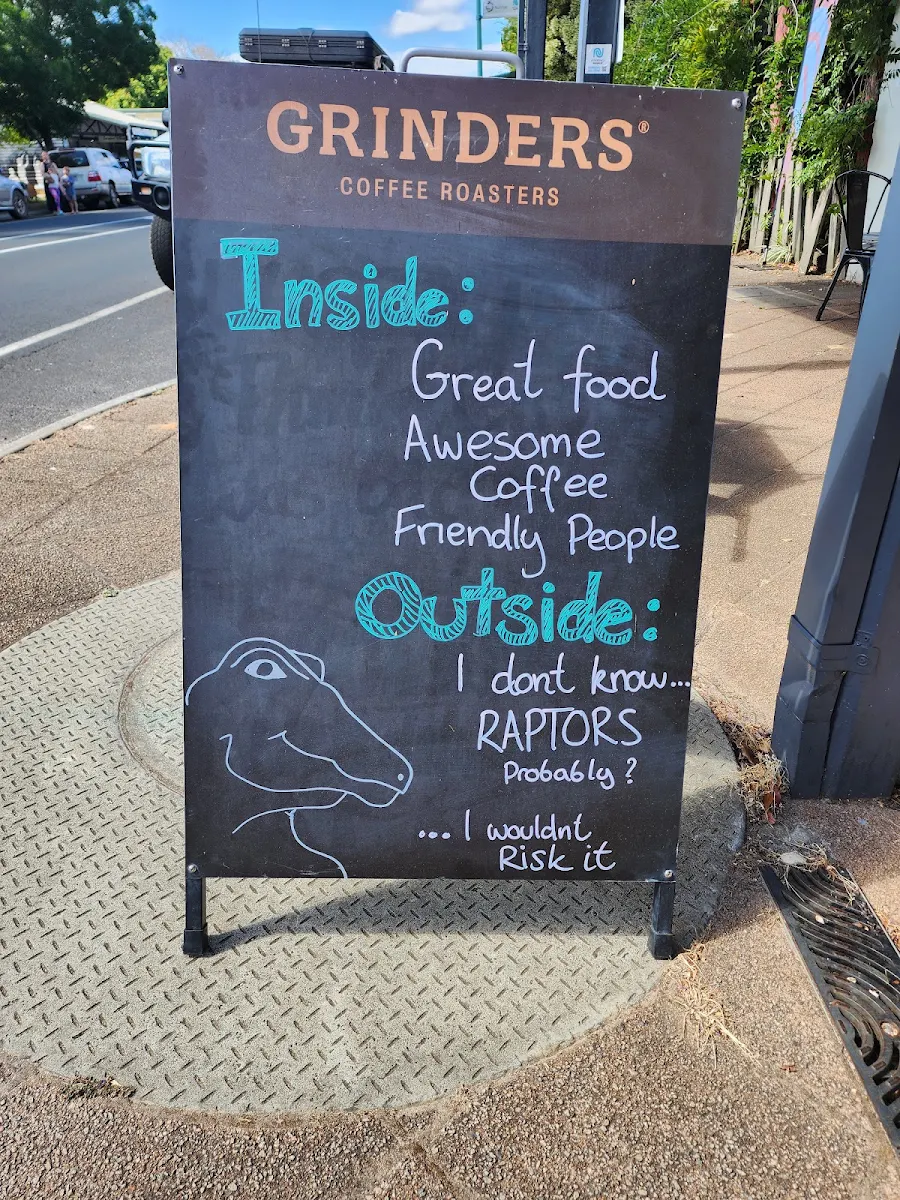 GRINDERS®
COFFEE ROASTERS
Inside:
Great food
Awesome
Coffee
Friendly People
Outside:
I dont know...
RAPTORS
Probably?
...I wouldnt
Risk it